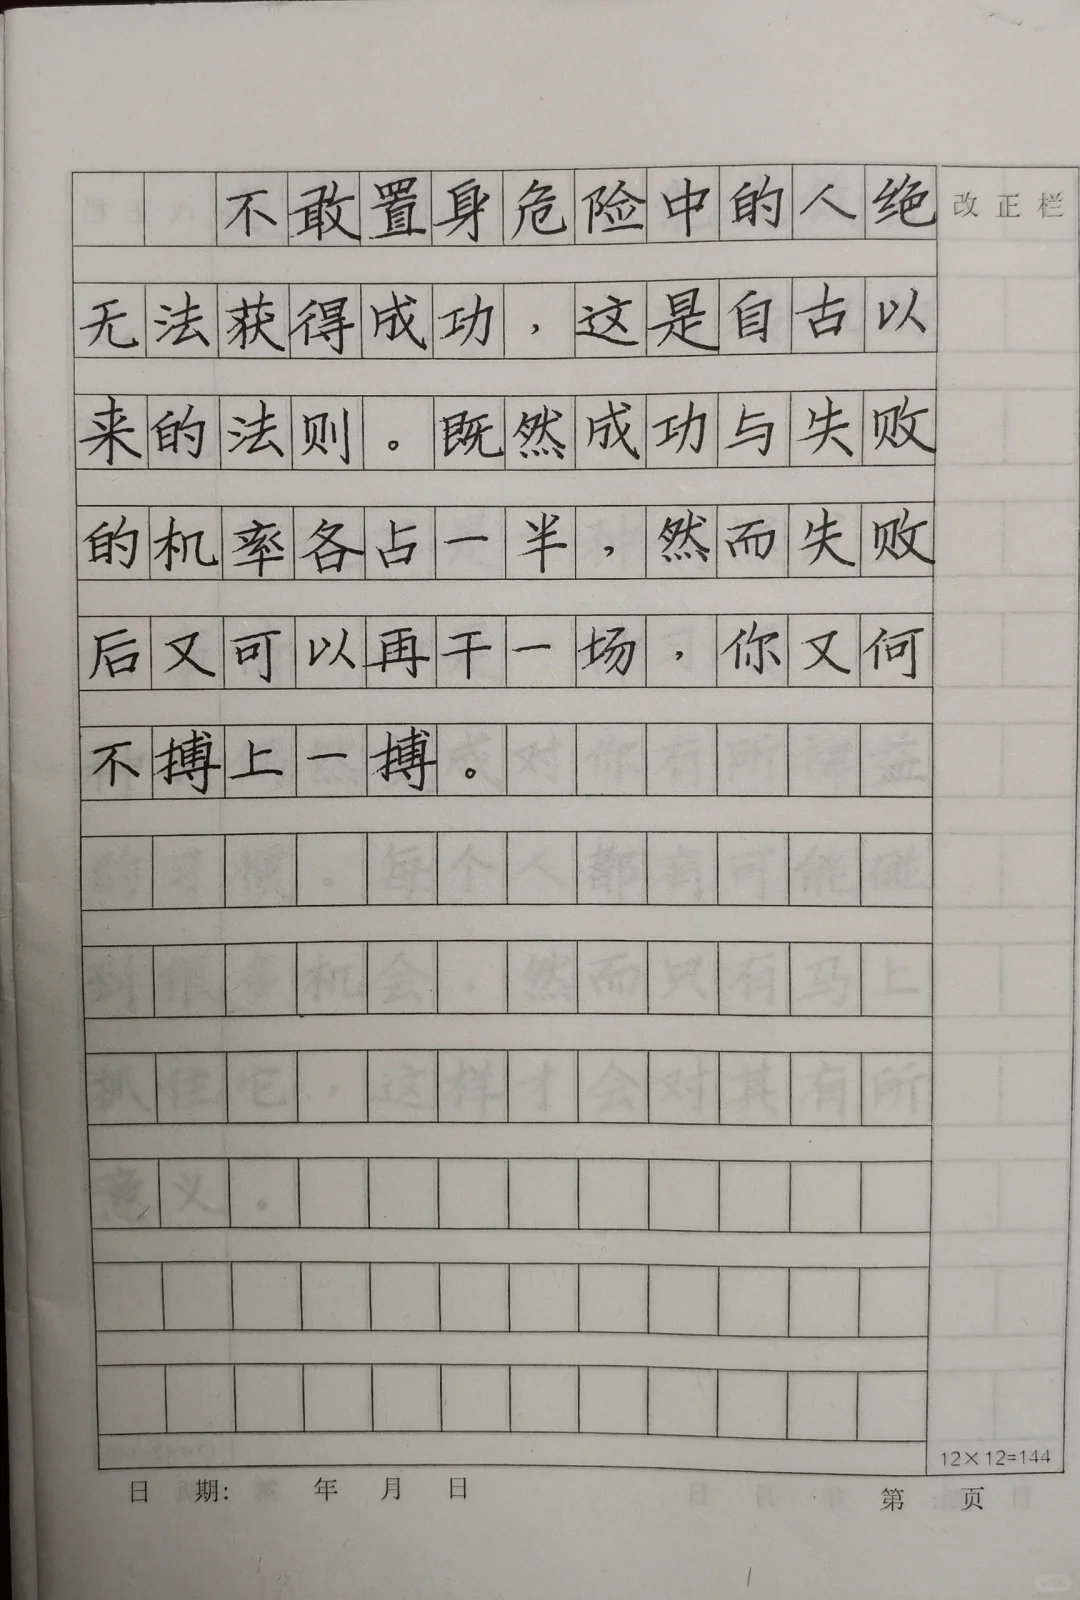 不敢置身危险中的人绝
无法获得成功，这是自古以
来的法则。既然成功与失败
的机率各占一半，然而失败
后又可以再干一场，你又何
不搏上一搏。
改正栏
12×12=144
日期: 年 月 日
第 页